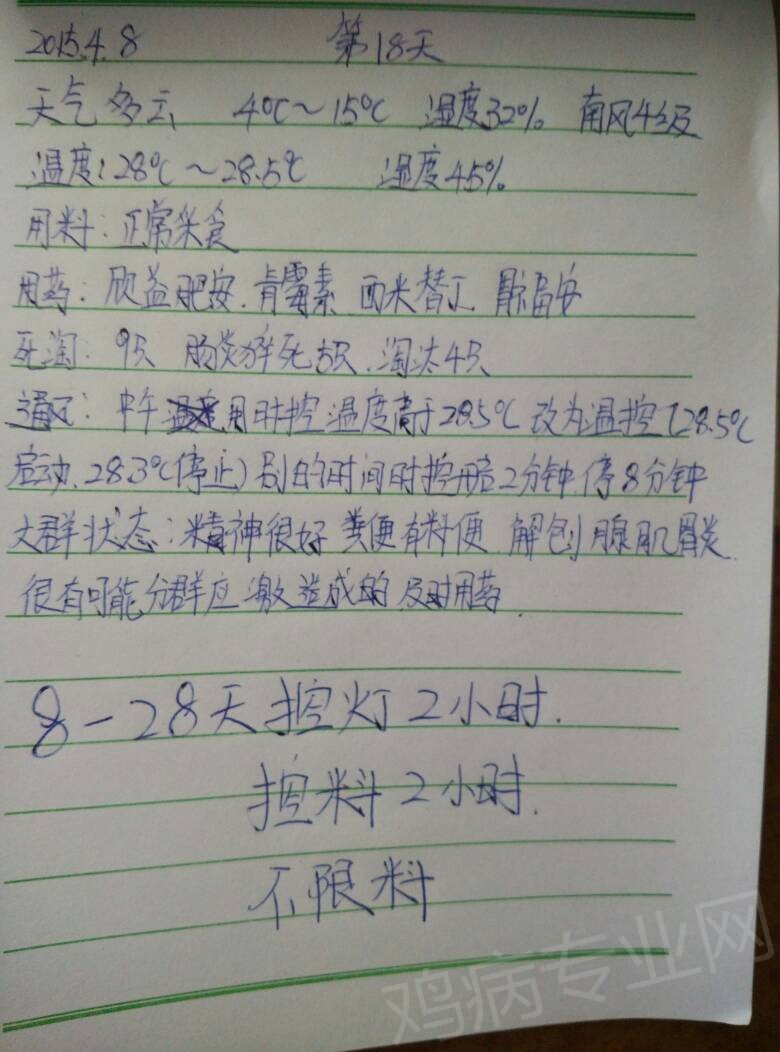 2015.4.8 第18天
天气多云 4℃～15℃ 湿度32% 南风4级
温度：28℃～28.5℃ 湿度45%
用料：正常采食
用药：欣益肥安.青霉素 西米替丁
死淘：9只 肠炎猝死5只.淘汰4只
通风：中午用时控 温度高于28.5℃ 改为温控(28.5℃
启动.28.3℃停止)别的时间时控开启2分钟.停8分钟
大群状态：精神很好 粪便有料便 解刨腺肌胃炎.
很有可能分群应激造成的 及时用药.
8-28天控灯2小时.
控料2小时.
不限料
鸡病专业网